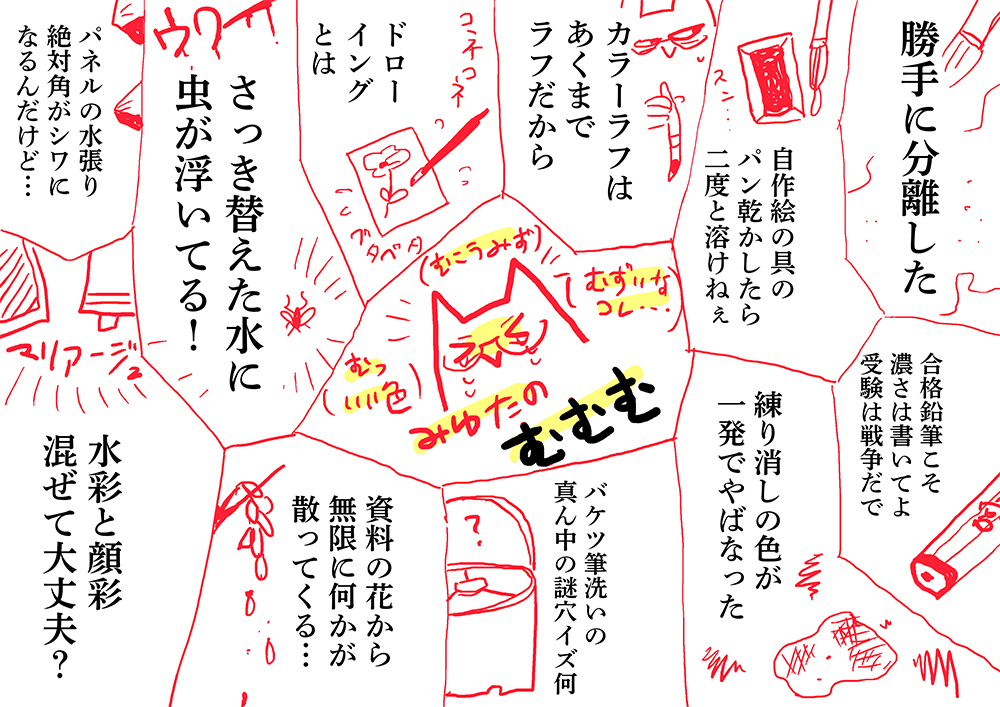 勝手に分離した
自作絵の具の
パン乾かしたら
二度と溶けねぇ
スン…
カラーラフは
あくまで
ラフだから
コネコネ
ドロー
イング
とは
グタベタ
ウワー
さっき替えた水に
虫が浮いてる！
パネルの水張り
絶対角がシワに
なるんだけど…
マリアージュ
(むこうみず)
(むずいな
コレ…)
(むっ
いい色)
みゆたの
むむむ
合格鉛筆こそ
濃さは書いてよ
受験は戦争だで
練り消しの色が
一発でやばなった
バケツ筆洗いの
真ん中の謎穴イズ何
?
資料の花から
無限に何かが
散ってくる…
水彩と顔彩
混ぜて大丈夫？